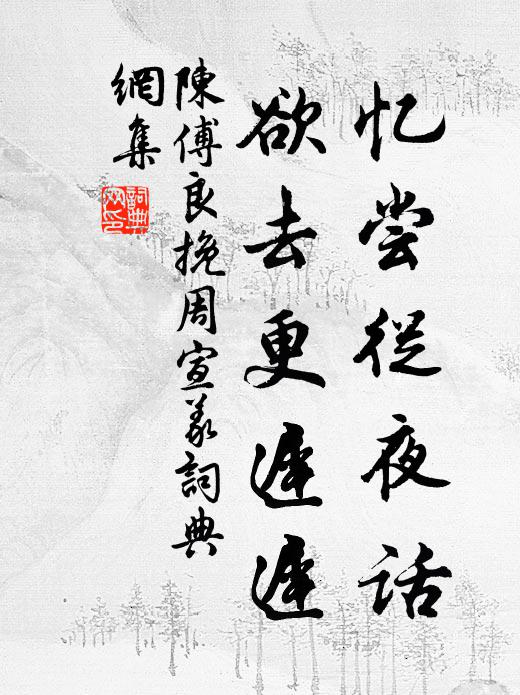 忆尝从夜话
欲去更遲遲
陳傅良挽周宣義詞典
網集
詞典
网印